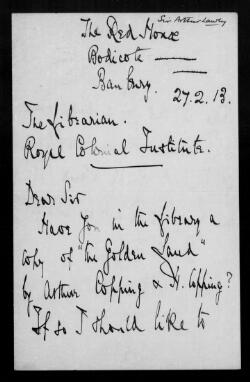 Sir Arthur Lawley
The Red House
Bodicote
Banbury.
27.2.13.
The Librarian.
Royal Colonial Institute.
Dear Sir
Have you in the library a
copy of "the Golden Land"
by Arthur Copping & H. Copping?
If so I should like to